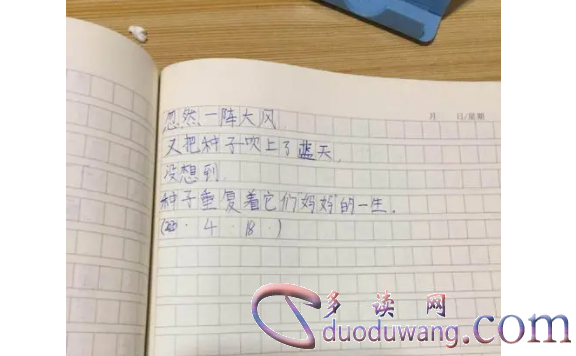 月 日/星期
忽然一阵大风,
又把种子吹上了蓝天,
没想到,
种子重复着它们“妈妈”的一生。
( · 4 · 18 · )
多读网
duoduwang.com